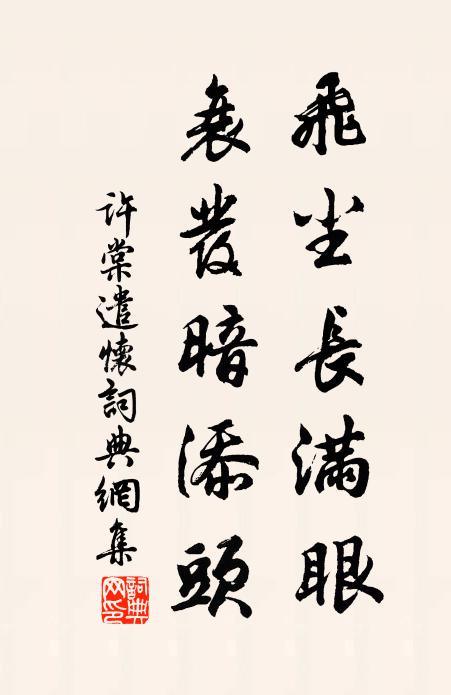 飛尘長滿眼
衰發暗添頭
許棠遣懷詞典網集
詞典网印